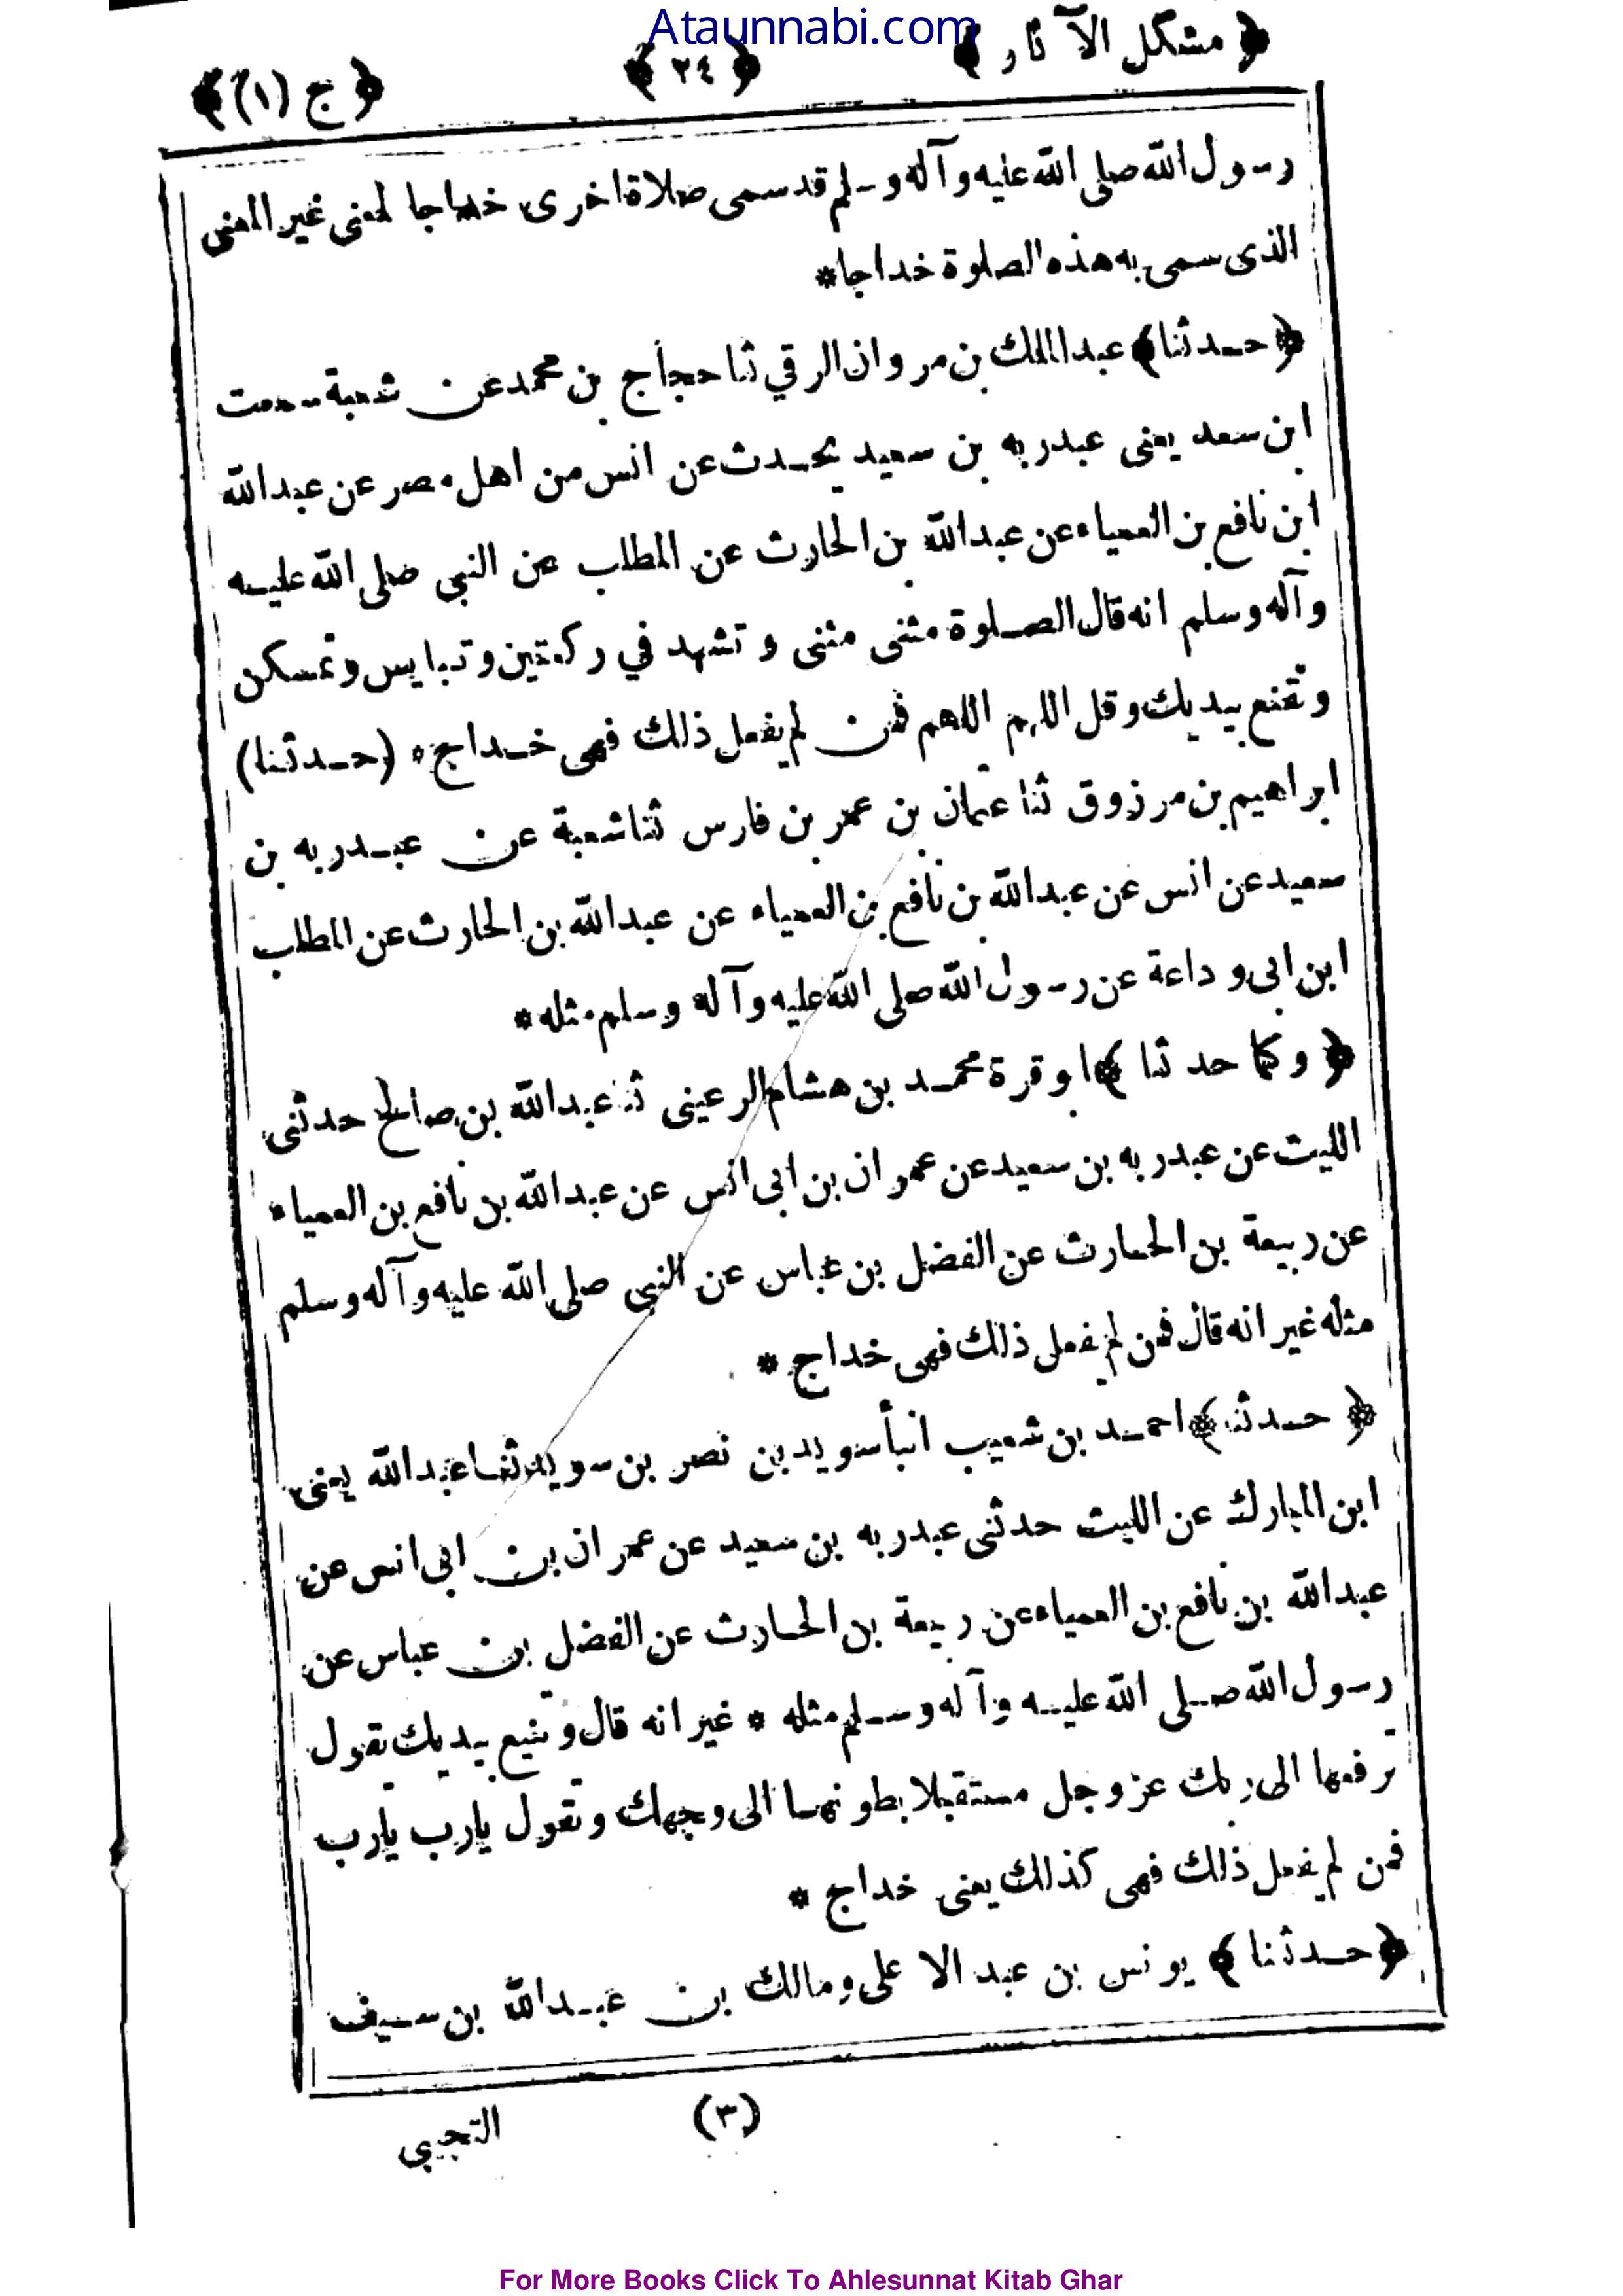 Ataunnabi.com
﴿ مشكل الآثار ﴾ ﴿ ٢٤ ﴾ ﴿ ج (١) ﴾
رسول الله صلى الله عليه وآله وسلم قد سمى صلاة اخرى خداجا لمعنى غير المعنى
الذى سمى به هذه الصلوة خداجا*
﴿ حدثنا ﴾ عبد الملك بن مروان الرقي ثنا حجاج بن محمد عن شعبة سمعت
ابن سعد يعنى عبدربه بن سعيد يحدث عن انس من اهل مصر عن عبد الله
ابن نافع بن العمياء عن عبد الله بن الحارث عن المطلب عن النبى صلى الله عليه
وآله وسلم انه قال الصلوة مثنى مثنى و تشهد في ركعتين و تبايس وتمسكن
وتقنع بيديك وقل اللهم اللهم فمن لم يفعل ذلك فهى خداج* (حدثنا)
ابراهيم بن مرزوق ثنا عثمان بن عمر بن فارس ثنا شعبة عن عبدربه بن
سعيد عن انس عن عبد الله بن نافع بن العمياء عن عبد الله بن الحارث عن المطلب
ابن ابى وداعة عن رسول الله صلى الله عليه وآله وسلم مثله *
﴿ وكما حدثنا ﴾ ابو قرة محمد بن هشام الرعينى ثنا عبد الله بن صالح حدثنى
الليث عن عبدربه بن سعيد عن عمران بن ابى انس عن عبد الله بن نافع بن العمياء
عن ربيعة بن الحارث عن الفضل بن عباس عن النبى صلى الله عليه وآله وسلم
مثله غير انه قال فمن لم يفعل ذلك فهى خداج *
﴿ حدثنا ﴾ احمد بن شعيب انبأ سويد بن نصر بن سويد ثنا عبد الله يعنى
ابن المبارك عن الليث حدثنى عبدربه بن سعيد عن عمران بن ابى انس عن
عبد الله بن نافع بن العمياء عن ربيعة بن الحارث عن الفضل بن عباس عن
رسول الله صلى الله عليه وآله وسلم مثله * غير انه قال و يديك تقول
ترفعها الى ربك عز وجل مستقبلا بطونهما الى وجهك وتقول يارب يارب
فمن لم يفعل ذلك فهى كذالك يعنى خداج *
﴿ حدثنا ﴾ يونس بن عبد الاعلى ومالك بن عبد الله بن سيف
(٣) التجيبى
For More Books Click To Ahlesunnat Kitab Ghar